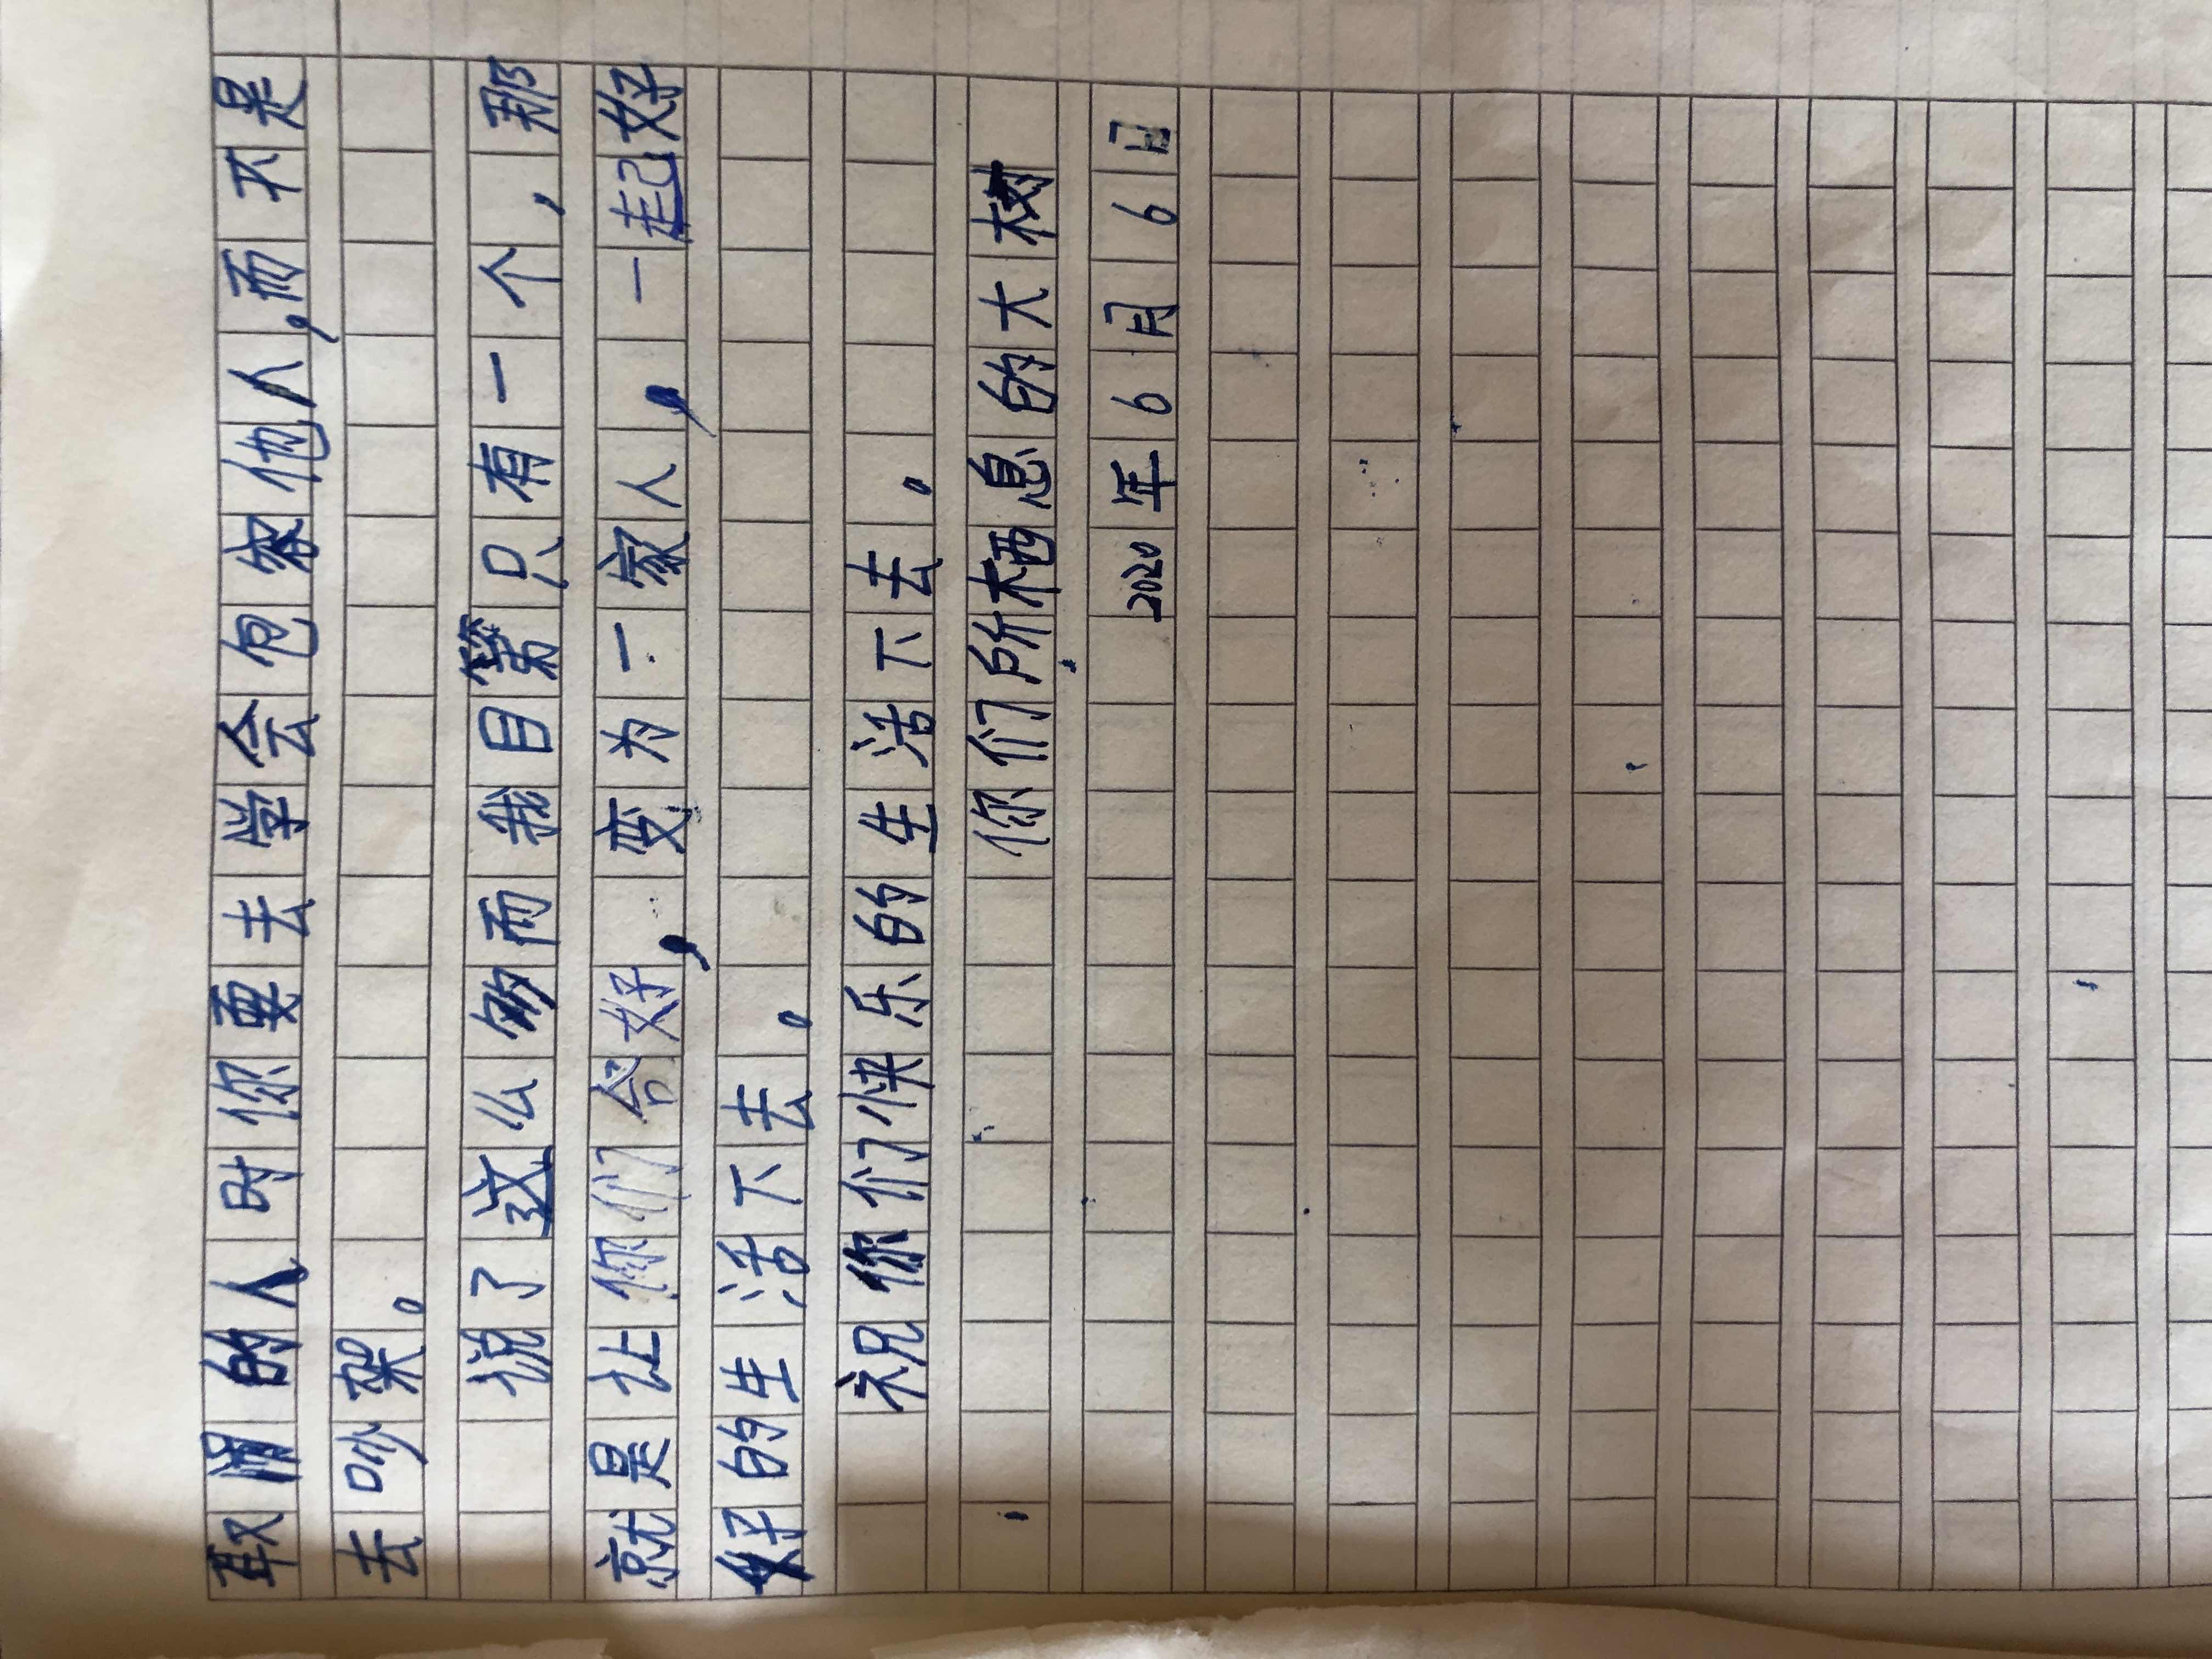 取用的人时你要去学会包容他人，而不是
去吵架。
说了这么多而我目第只有一个，那
就是让你们合好，变为一家人，一起好
好的生活下去。
祝你们快乐的生活下去。
你们所栖息的大树
2020年6月6日